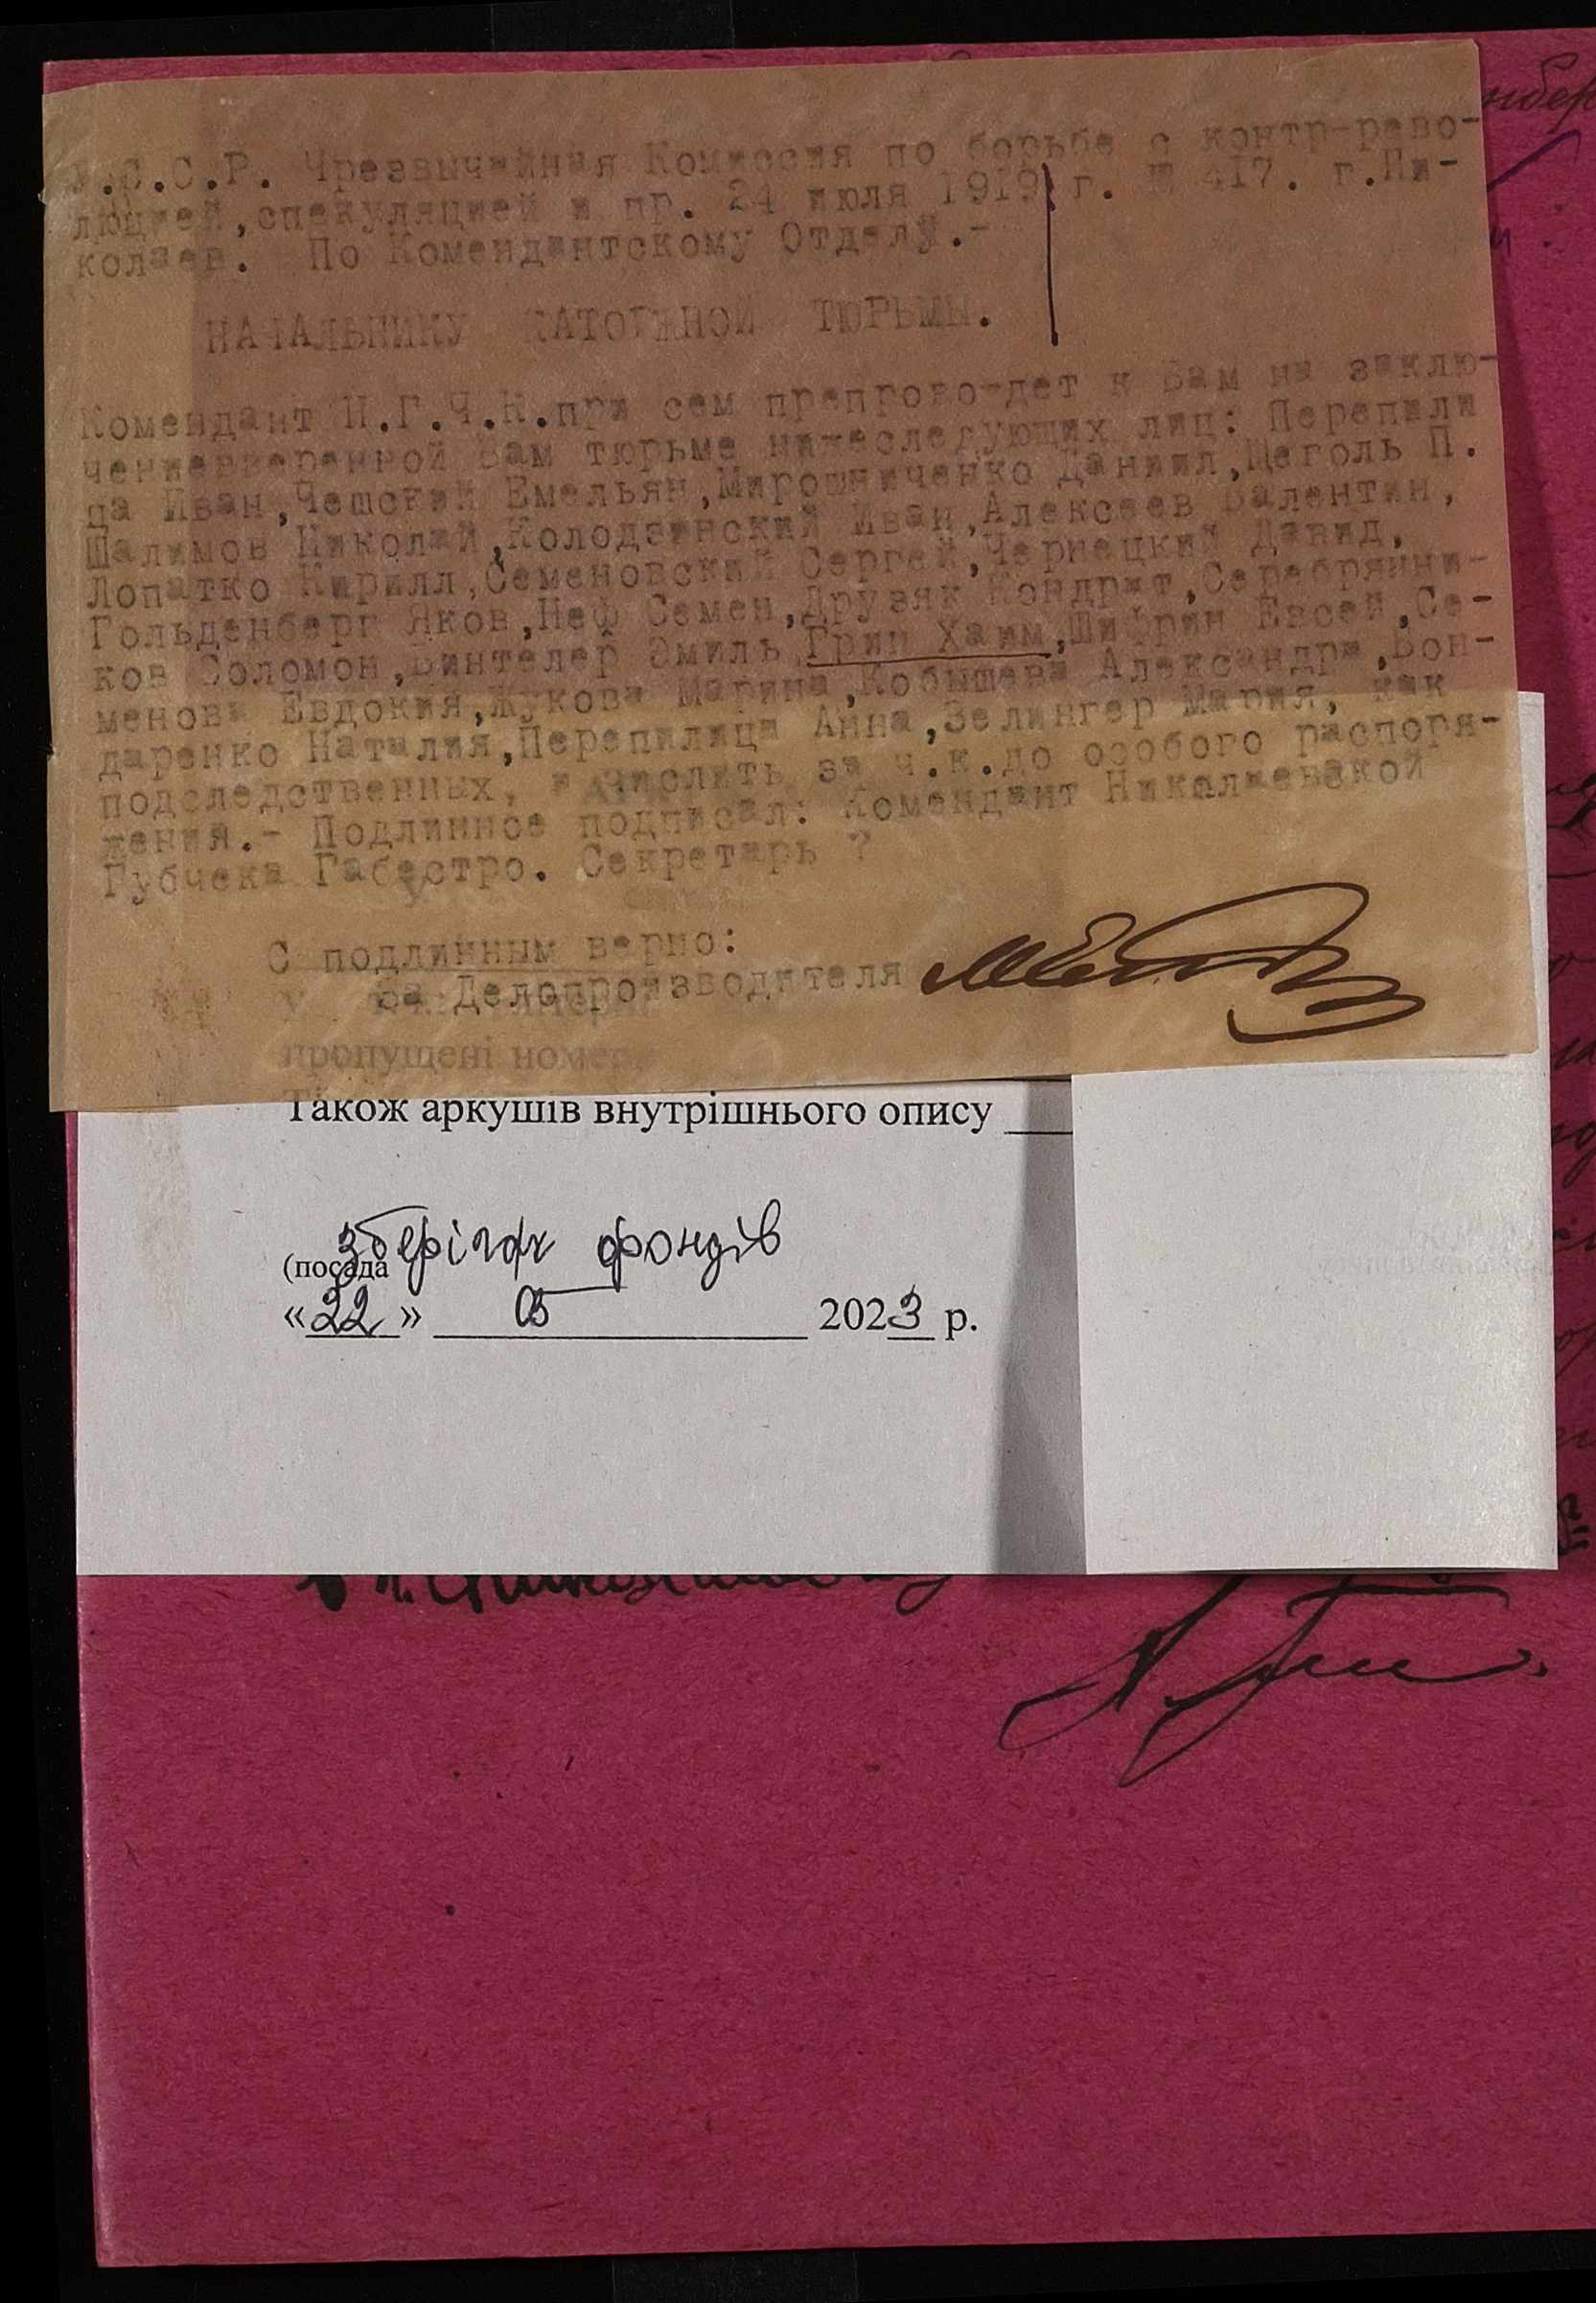 У.С.С.Р. Чрезвычайная Комиссия по борьбе с контр-рево-
люцией,спекуляцией и пр. 24 июля 1919 г. № 417. г.Ни-
колаев. По Комендантскому Отделу.-
НАЧАЛЬНИКУ КАТОРЖНОЙ ТЮРЬМЫ.
Комендант Н.Г.Ч.К.при сем препровождет к Вам на заклю-
чениевверенной Вам тюрьме нижеследующих лиц: Перепили
ца Иван,Чешский Емельян,Мирошниченко Даниил,Щеголь П.
Шалимов Николай,Колодзинский Иван,Алексеев Валентин,
Лопатко Кирилл,Семеновский Сергей,Чернецкий Давид,
Гольденберг Яков,Неф Семен,Друзяк Кондрат,Серебрянни-
ков Соломон,Винтелер Эмиль,Грин Хаим,Шифрин Евсей,Се-
менова Евдокия,Жукова Марина,Кобышева Александра,Бон-
даренко Наталия,Перепилица Анна,Зелингер Мария, как
подследственных, и числить за ч.к.до особого распоря-
жения.- Подлинное подписал: Комендант Никалаевакой
Губчека Габестро. Секретарь ?
С подлинным верно:
За Делопроизводителя
пропущені номери
Також аркушів внутрішнього опису
зберігач фондів
(посада
«22» 05 2023 р.